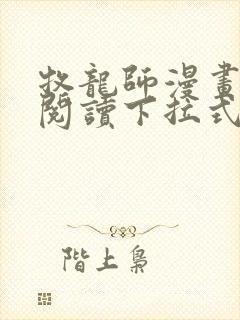 牧龍師漫畫
閱讀下拉式
階上梟